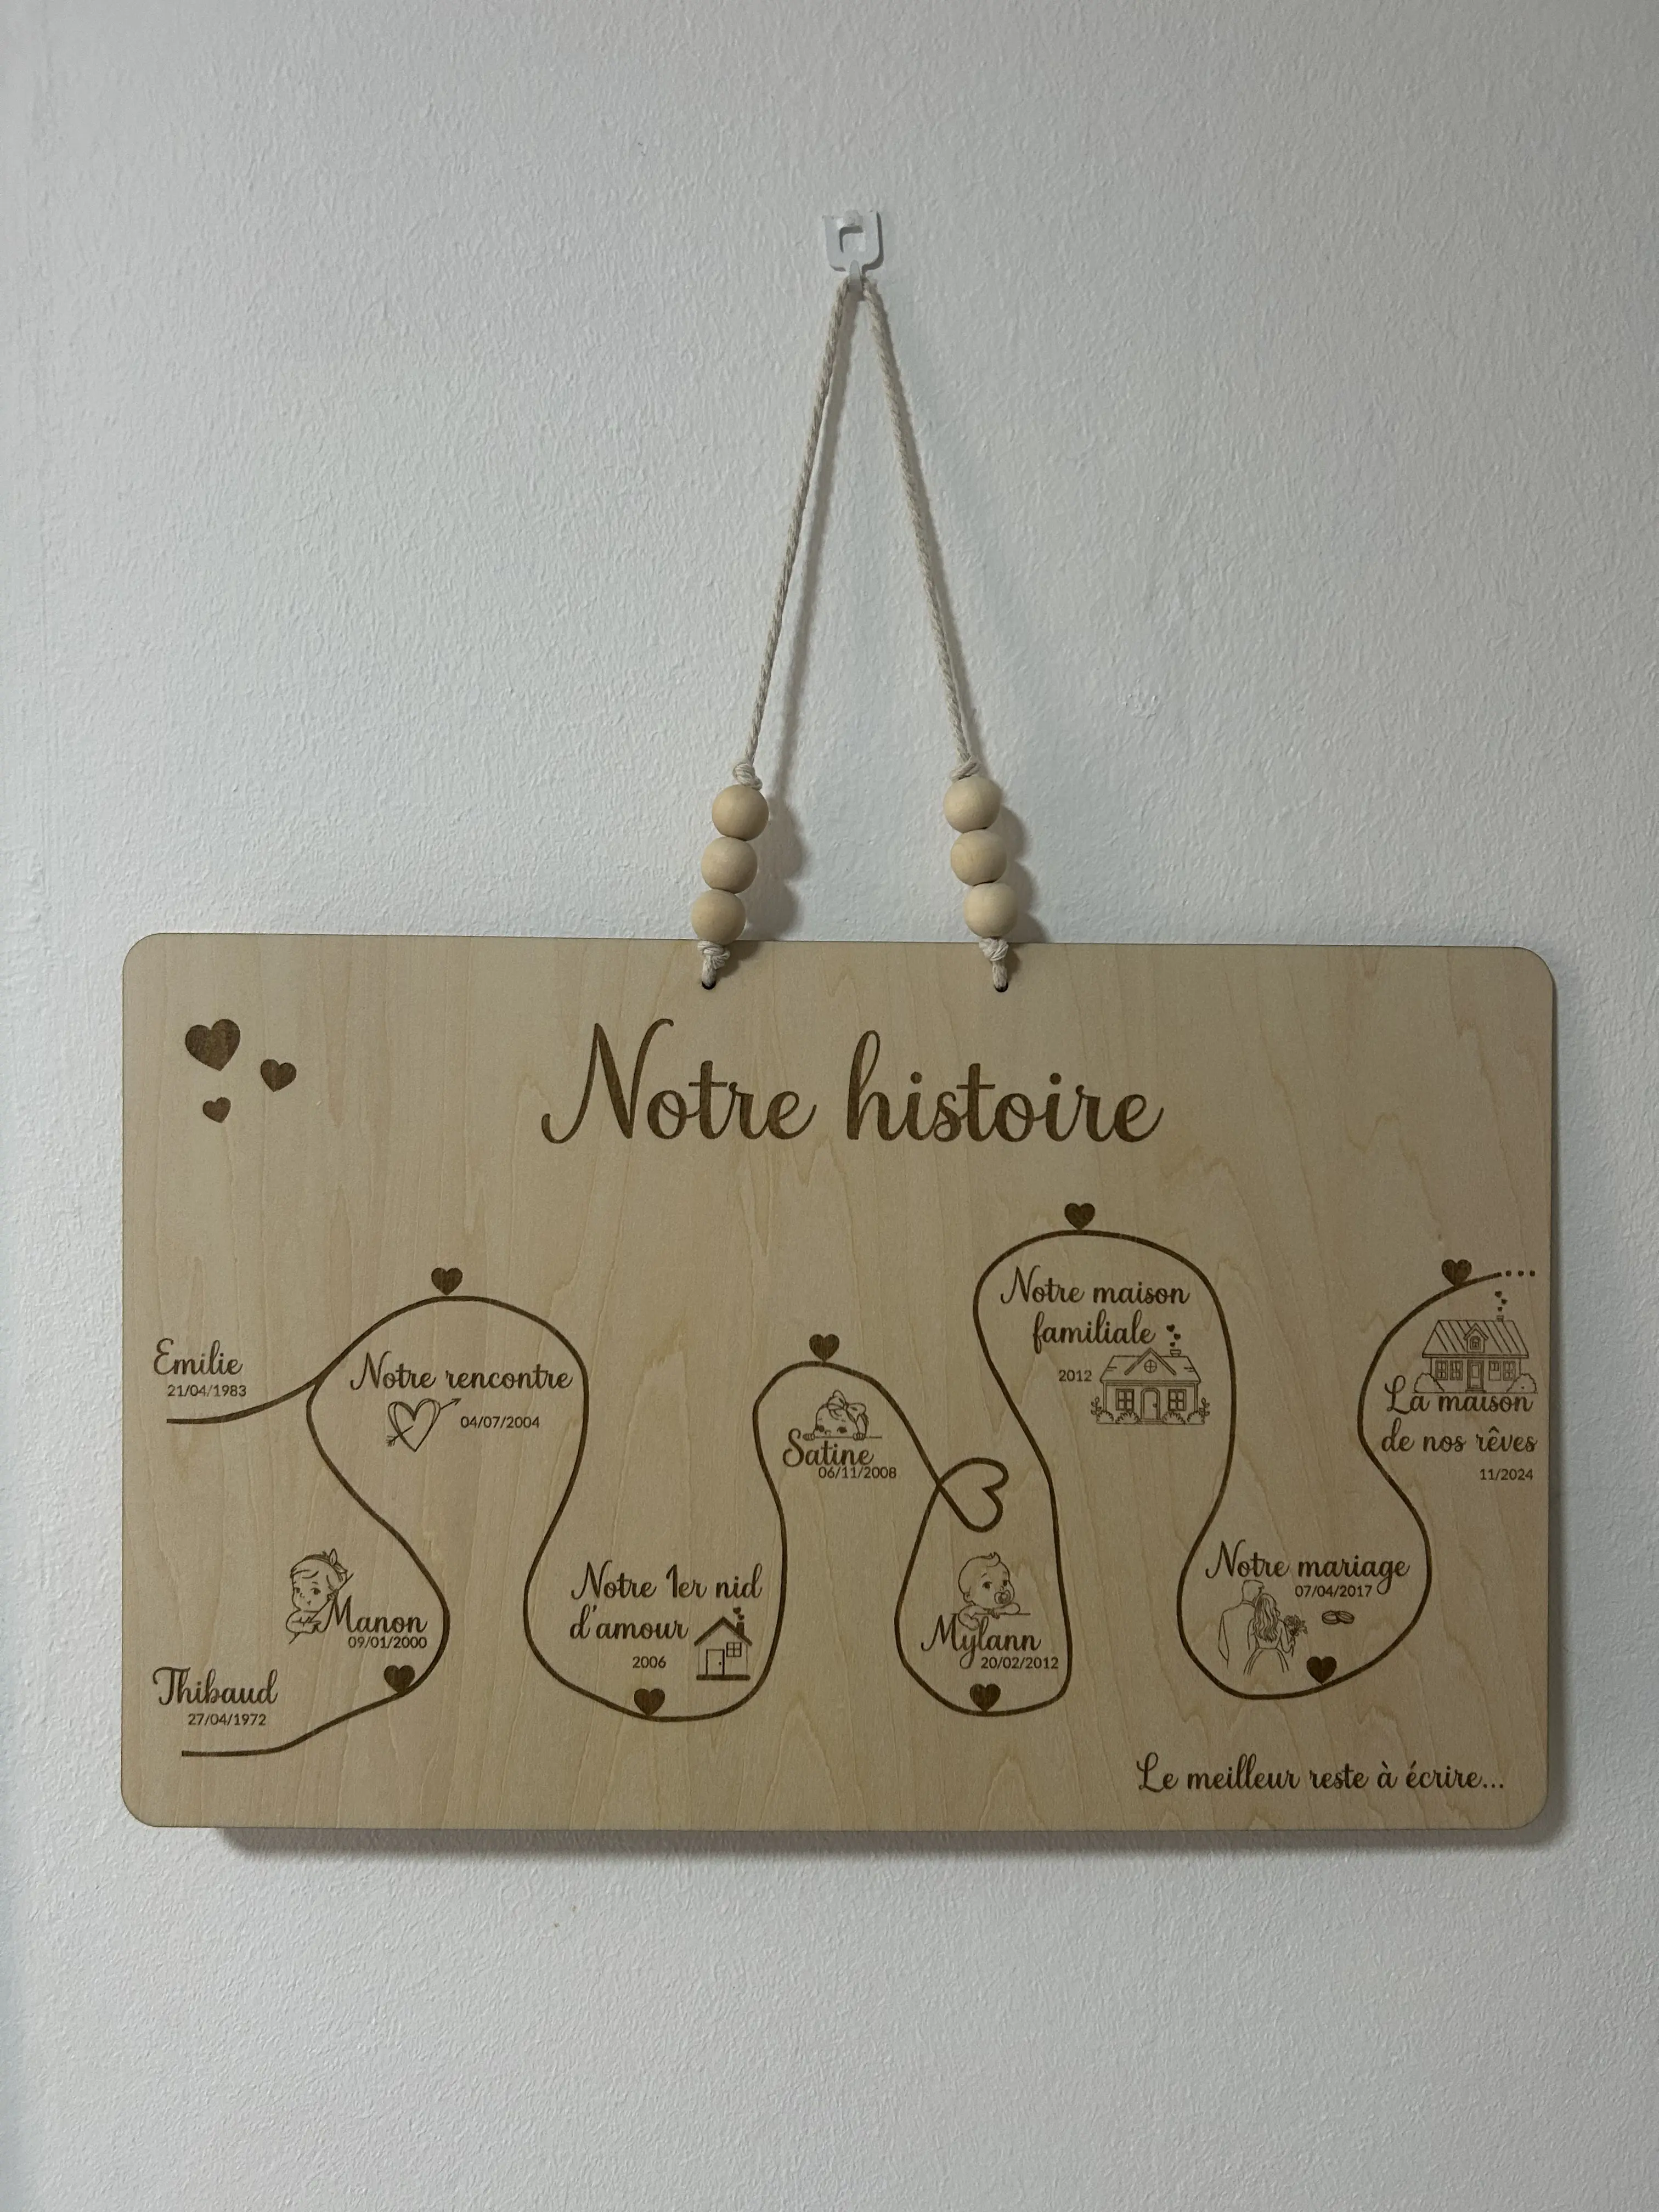 Notre histoire
Emilie
21/04/1983
Thibaud
27/04/1972
Manon
09/01/2000
Notre rencontre
04/07/2004
Notre 1er nid
d'amour
2006
Satine
06/11/2008
Mylann
20/02/2012
Notre maison
familiale
2012
Notre mariage
07/04/2017
La maison
de nos rêves
11/2024
Le meilleur reste à écrire...